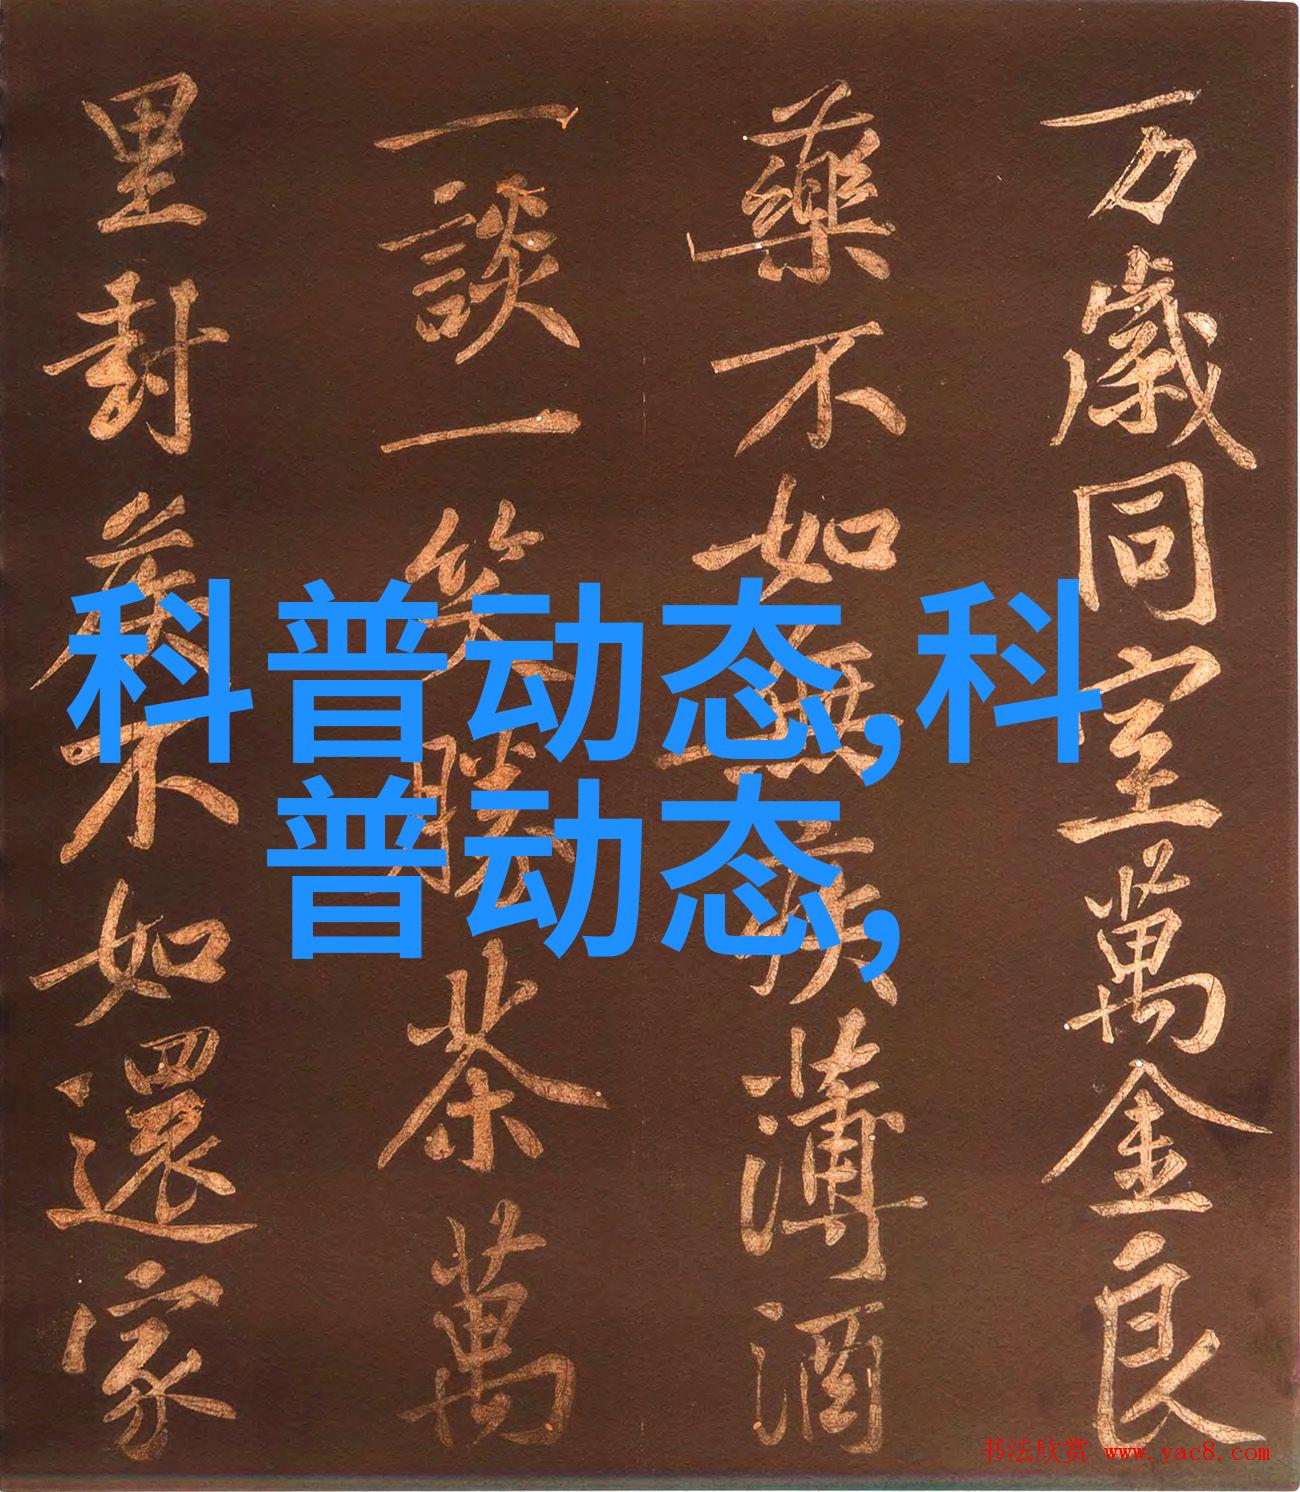 万歲同室萬金良
藥不如無疾薄酒
一談一笑勝茶萬
里封侯不如還家
科普动态,科
普动态,
书法欣赏 www.yac8.com